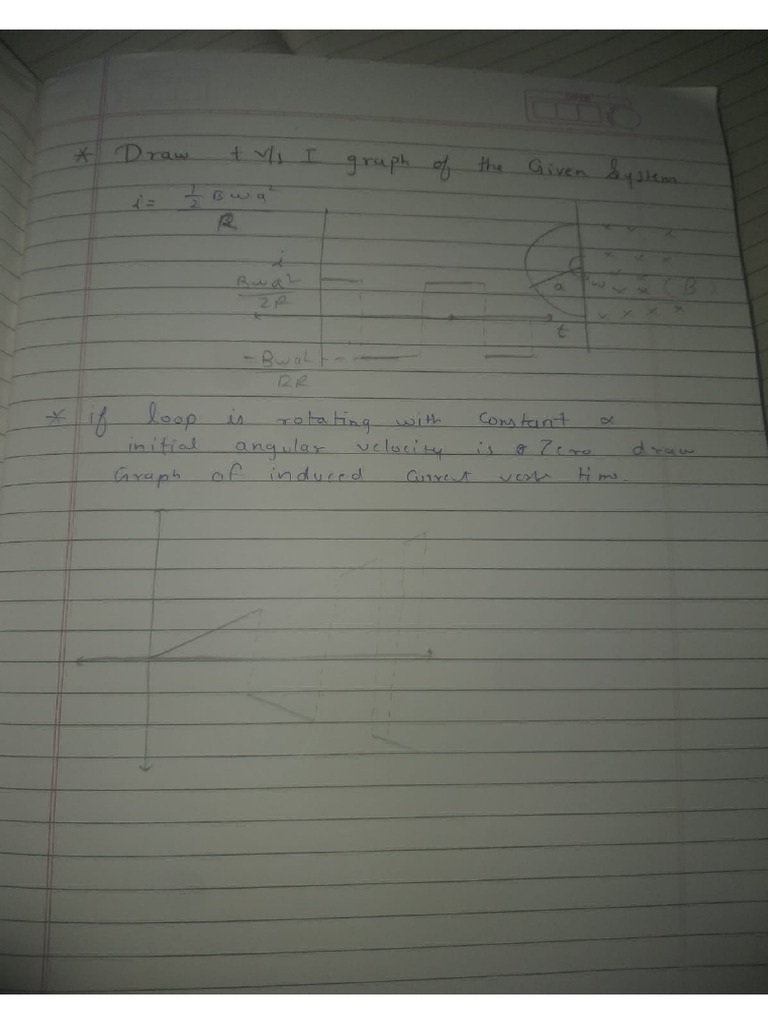 * Draw t v/s I graph of the Given System
i = 1/2 B w a²
R
i
Bwa²
2R
a w (B)
t
-Bwa²
2R
* if loop is rotating with constant α
initial angular velocity is Zero draw
Graph of induced current time.